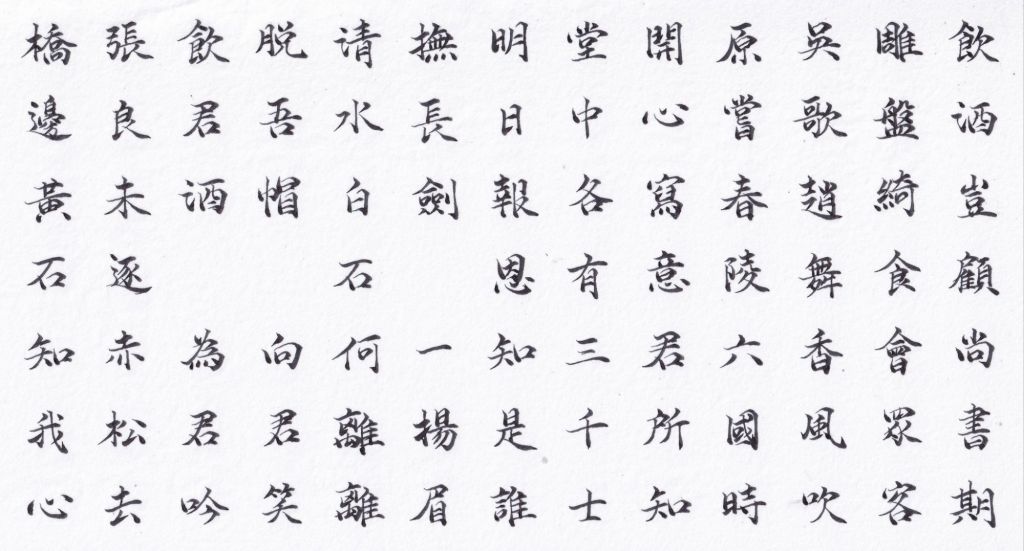 飲酒豈顧尚書期
雕盤綺食會眾客
吳歌趙舞香風吹
原嘗春陵六國時
開心寫意君所知
堂中各有三千士
明日報恩知是誰
撫長劍一揚眉
清水白石何離離
脱吾帽向君笑
飲君酒為君吟
張良未逐赤松去
橋邊黃石知我心